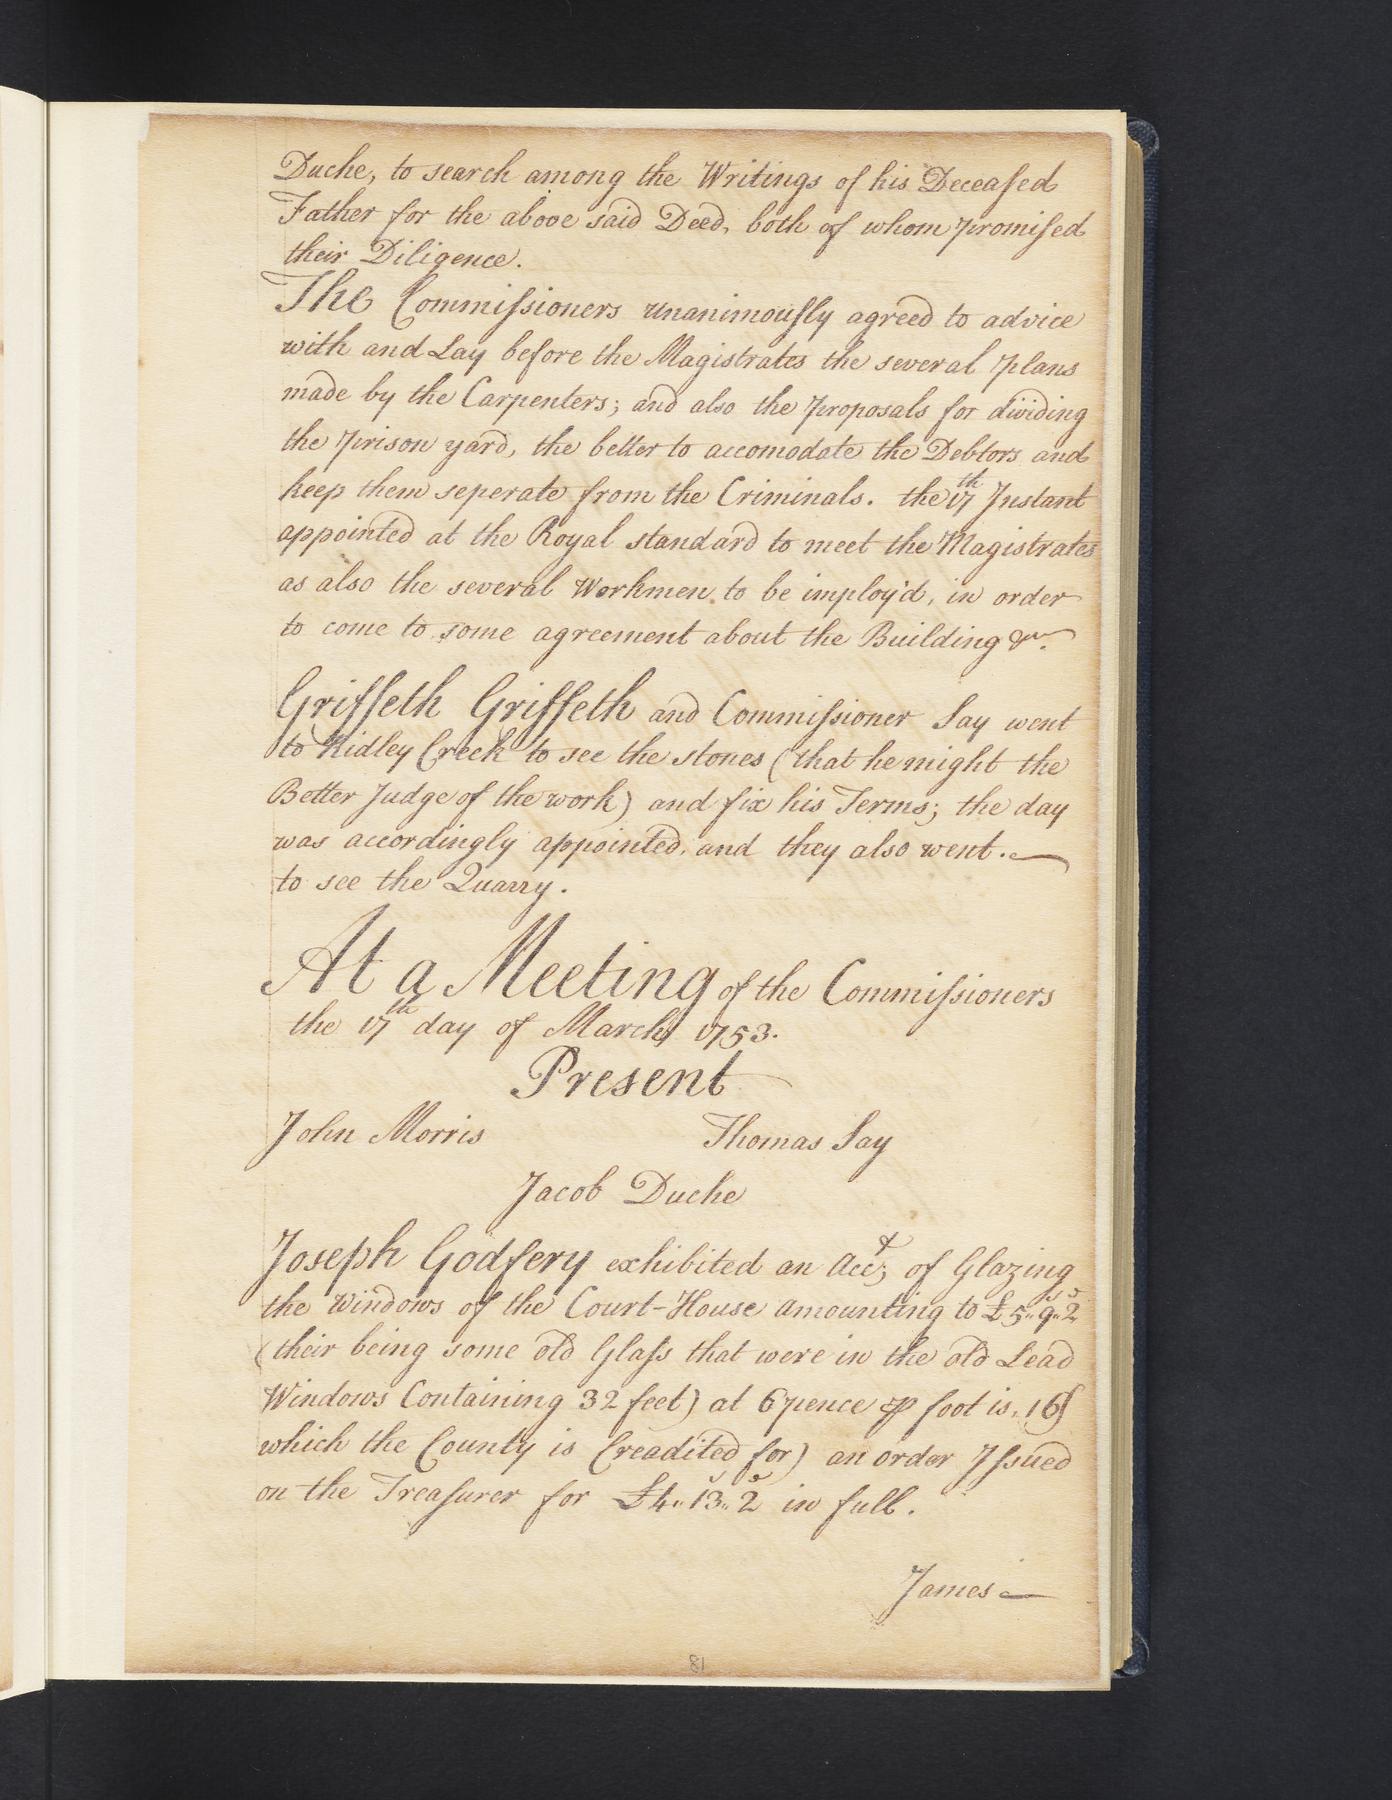 Duche, to search among the Writings of his Deceased
Father for the above said Deed, both of whom promised
their Diligence.
The Commissioners unanimously agreed to advice
with and Lay before the Magistrates the several plans
made by the Carpenters; and also the proposals for dividing
the prison yard, the better to accomodate the Debtors and
keep them seperate from the Criminals. the 17th Instant
appointed at the Royal standard to meet the Magistrates
as also the several Workmen to be imploy'd, in order
to come to some agreement about the Building &c.
Griffeth Griffeth and Commissioner Say went
to Ridley Creek to see the stones (that he might the
Better Judge of the work) and fix his Terms; the day
was accordingly appointed, and they also went.
to see the Quarry.
At a Meeting of the Commissioners
the 17th day of March 1753.
Present
John Morris Thomas Say
Jacob Duche
Joseph Godfery exhibited an Acct; of Glazing
the Windows of the Court-House amounting to £5..9s..2d
(their being some old Glass that were in the old Lead
Windows Containing 32 feet) at 6 pence ⅌ foot is, 16s
which the County is Creadited for) an order Issued
on the Treasurer for £4..13s..2d in full.
James
18